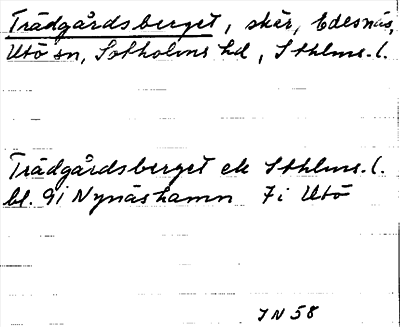 Trädgårdsberget, skär, Edesnäs,
Utö sn, Sotholms hd, Sthlms. l.
Trädgårdsberget ek Sthlms. l.
bl. 9i Nynäshamn 7i Utö
JN 58